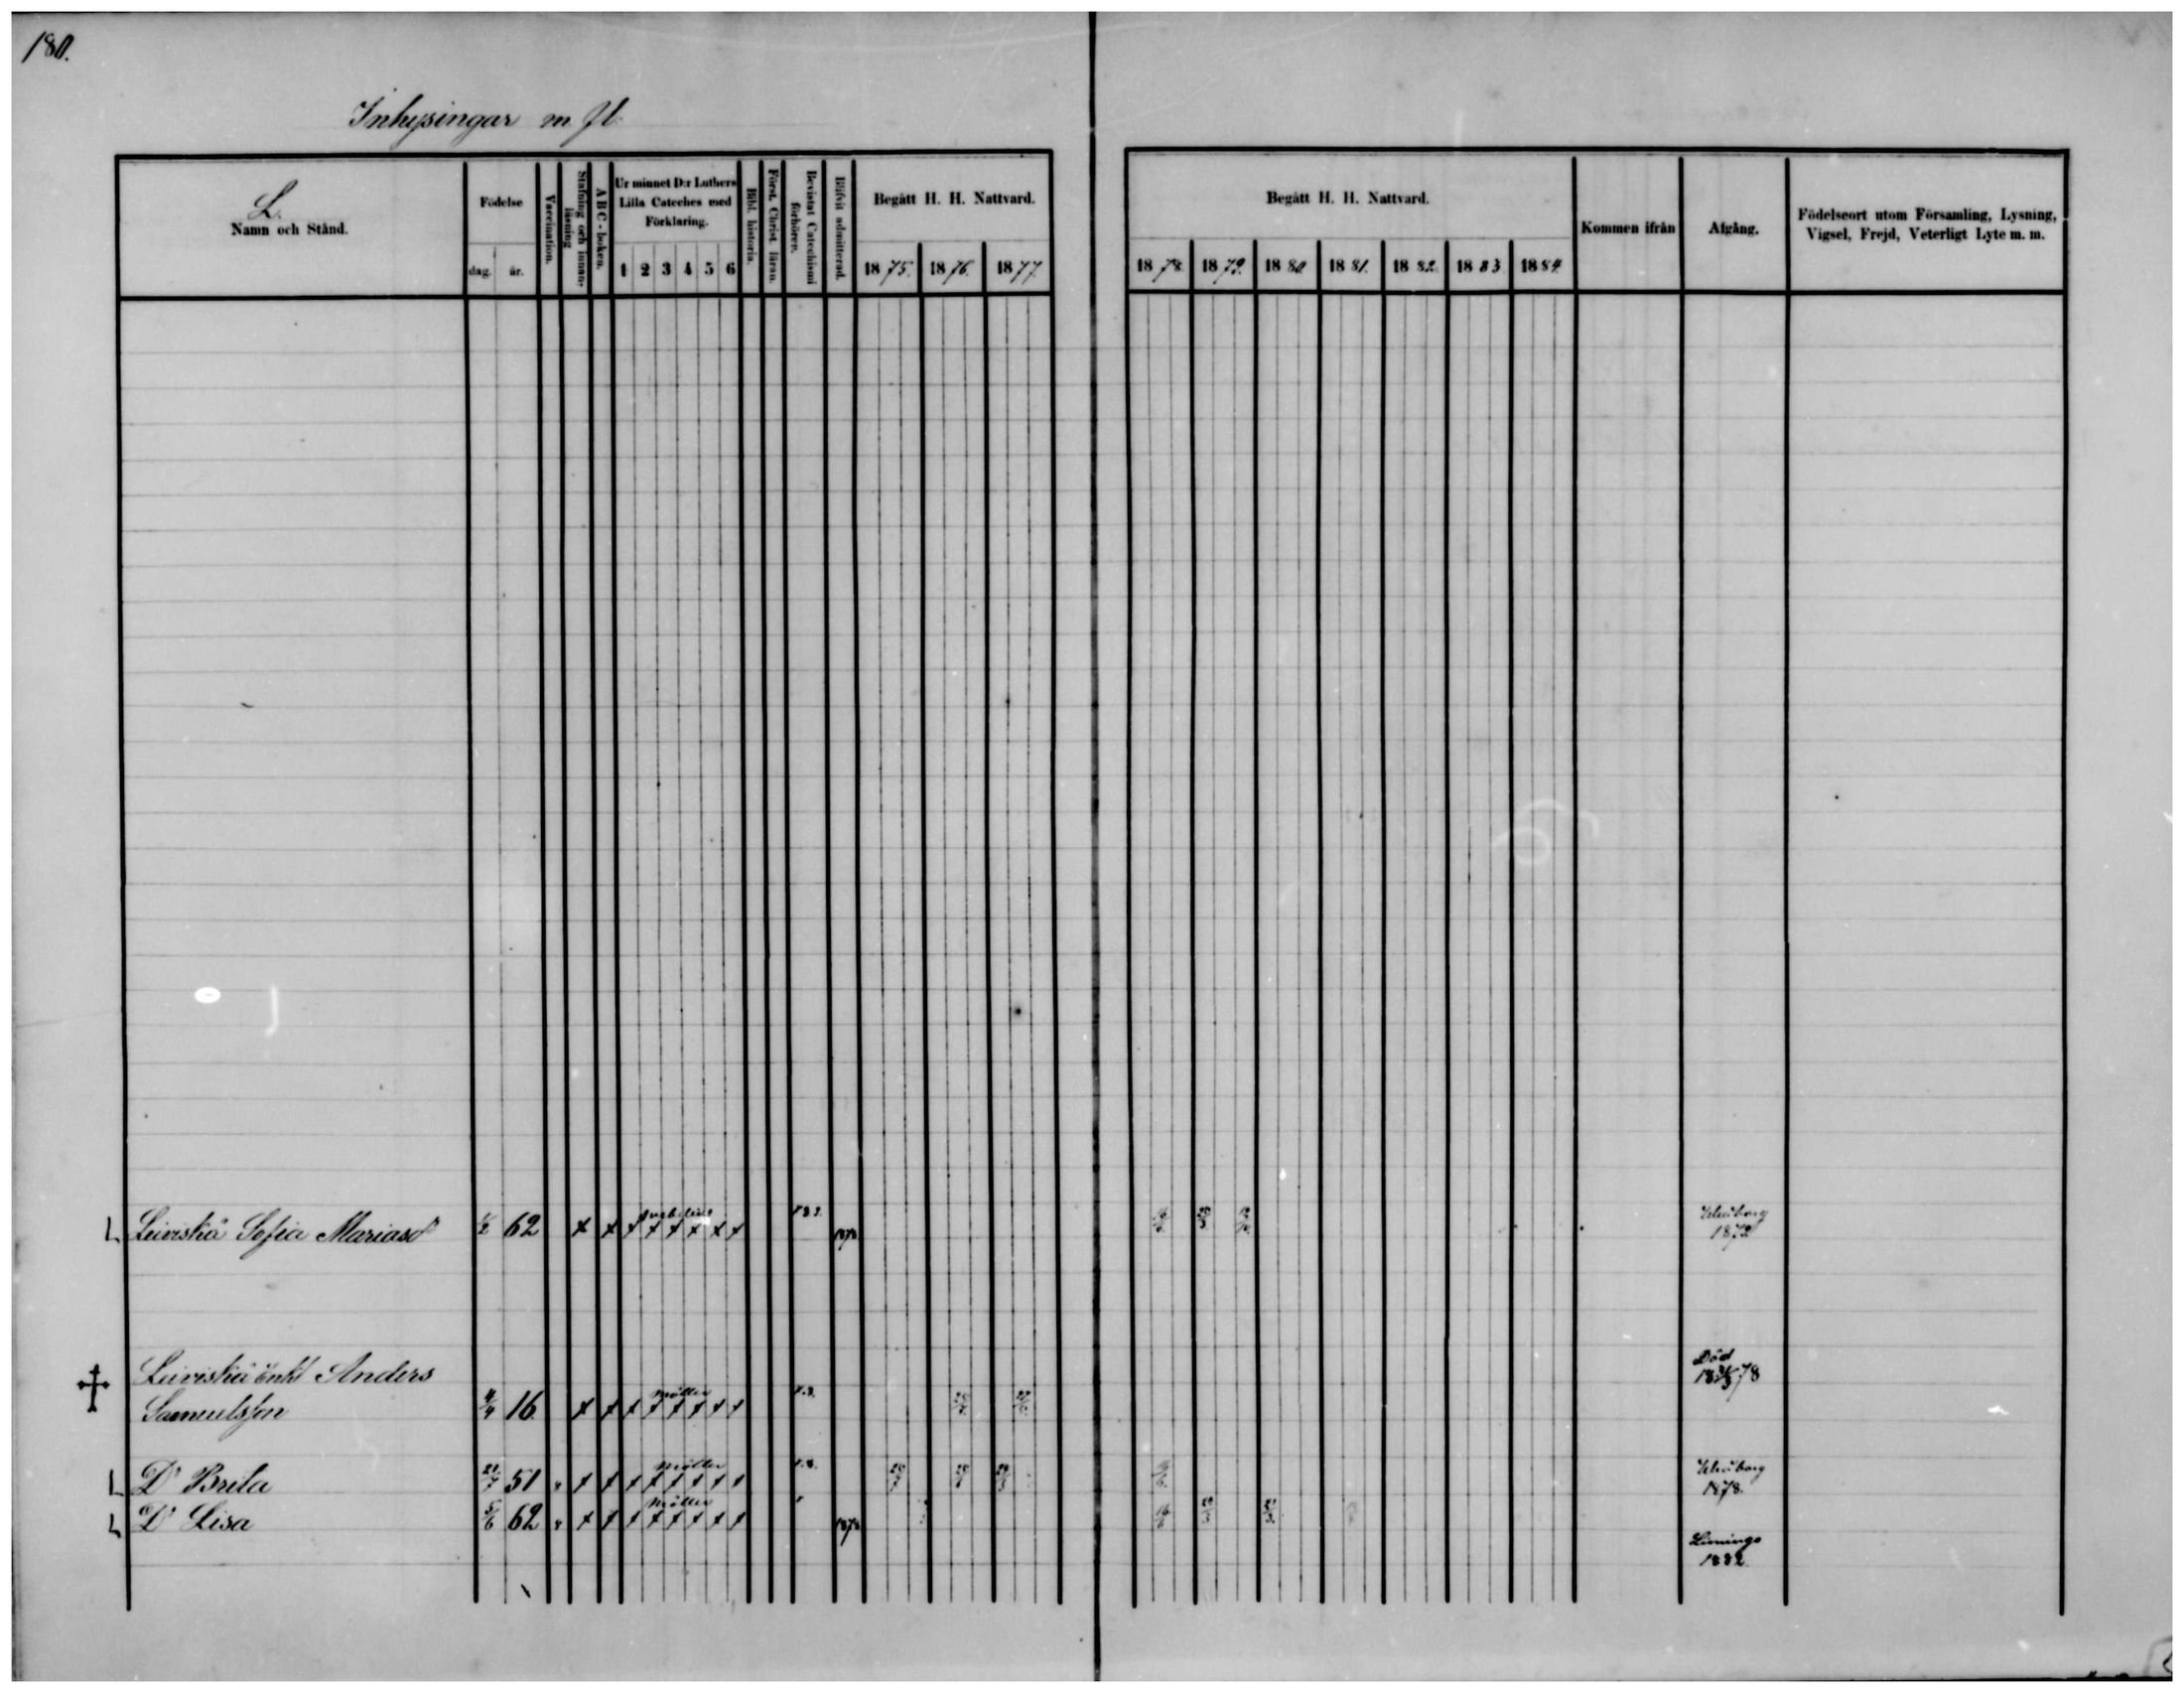 180.
Inhysingar m. fl.
L.
Namn och Stånd.
Födelse
dag. år.
Vaccination.
Stafning och innan-
läsning
ABC-boken.
Ur minnet D:r Luthers
Lilla Cateches med
Förklaring.
1 2 3 4 5 6
Bibl. historia.
Först. Christ. läran.
Bevistat Catechismi
förhören.
Blifvit admitterad.
Begått H. H. Nattvard.
1875. 1876. 1877.
Begått H. H. Nattvard.
1878. 1879. 1880 1881. 1882. 1883 1884.
Kommen ifrån
Afgång.
Födelseort utom Församling, Lysning,
Vigsel, Frejd, Veterligt Lyte m. m.
L Leiviskä Sofia Mariasd 1/2 62 x x x x x x x x 1878
Uleåborg
1879
Leiviskä enkl Anders
Samuelsson 4/4 16 x x x x x x x x
möller
Död
1878
L Do Brita 21/7 51 x x x x x x x x
möller
Uleåborg
1878.
L Do Lisa 5/6 62 x x x x x x x x 1878
möller
Limingo
1882.